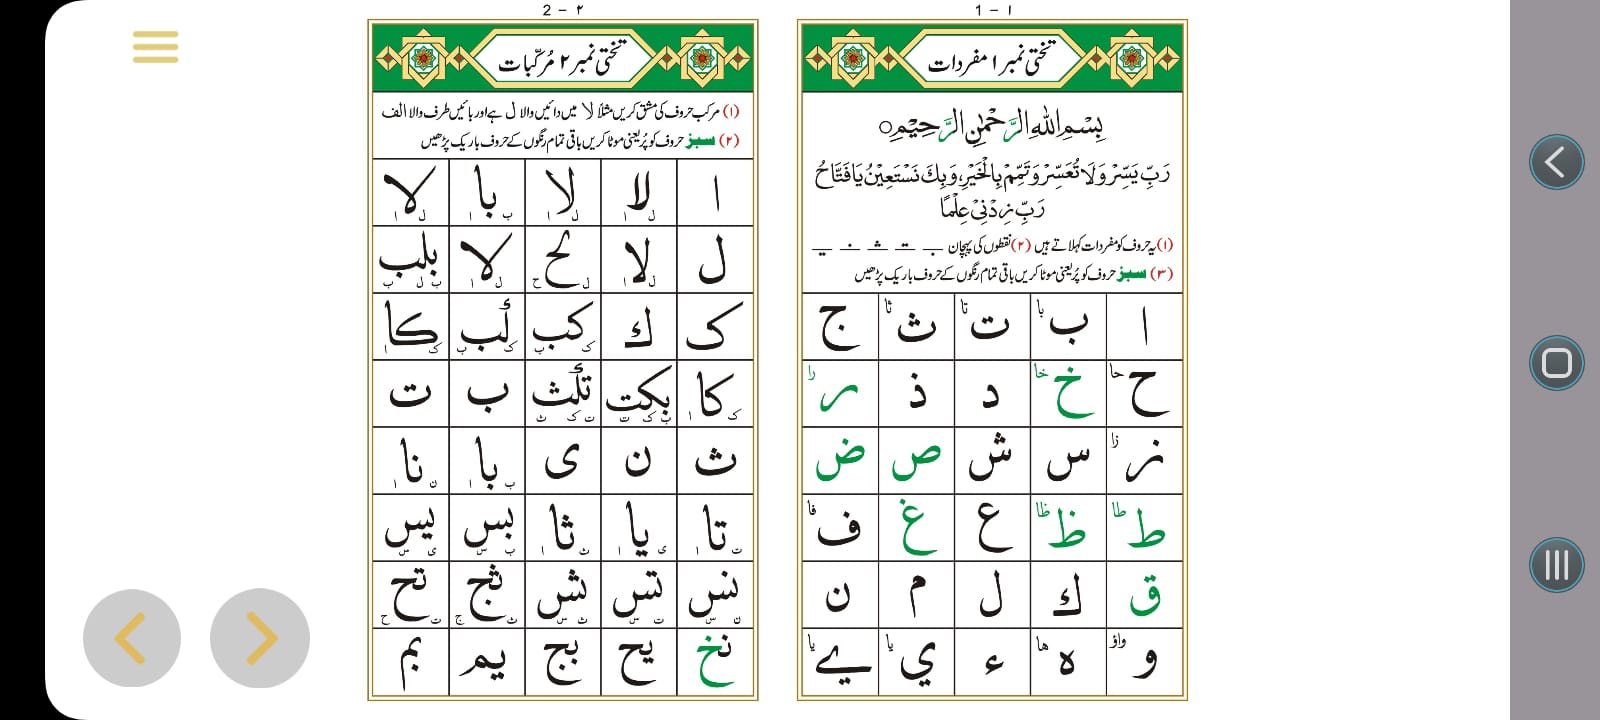 1 - ۱
تختی نمبر ۱ مفردات
بِسْمِ اللّٰهِ الرَّحْمٰنِ الرَّحِيْمِ ○
رَبِّ يَسِّرْ وَلَا تُعَسِّرْ وَتَمِّمْ بِالْخَيْرِ، وَبِكَ نَسْتَعِيْنُ يَافَتَّاحُ
رَبِّ زِدْنِيْ عِلْمًا
(۱) یہ حروف کو مفردات کہلاتے ہیں (۲) نقطوں کی پہچان
(۳) سبز حروف کو پُر یعنی موٹا کریں باقی تمام رنگوں کے حروف باریک پڑھیں
ا ب با ت تا ث ثا ج
ح حا خ خا د ذ ر را
ز زا س ش ص ض
ط طا ظ ظا ع غ ف فا
ق ك ل م ن
و واؤ ه ها ء ي يا ے يا
2 - ۲
تختی نمبر ۲ مُرکّبات
(۱) مرکب حروف کی مشق کریں مثلاً لا میں دائیں والا ل ہے اور بائیں طرف والا الف
(۲) سبز حروف کو پُر یعنی موٹا کریں باقی تمام رنگوں کے حروف باریک پڑھیں
ا لا ل ا لا ل ا با ب ا لا ل ا
ل لا ل ا لح ل ح لا ل ا بلب ب ل ب
ک ك کب ک ب کب ک ب کا ک ا
کا ک ا بکت ب ک ت تکث ت ک ث ب ت
ث ن ی با ب ا نا ن ا
تا ت ا یا ی ا ثا ث ا بس ب س یس ی س
نس ن س تس ت س شس ث س ثج ث ج تح ت ح
نخ یح بج یم بم